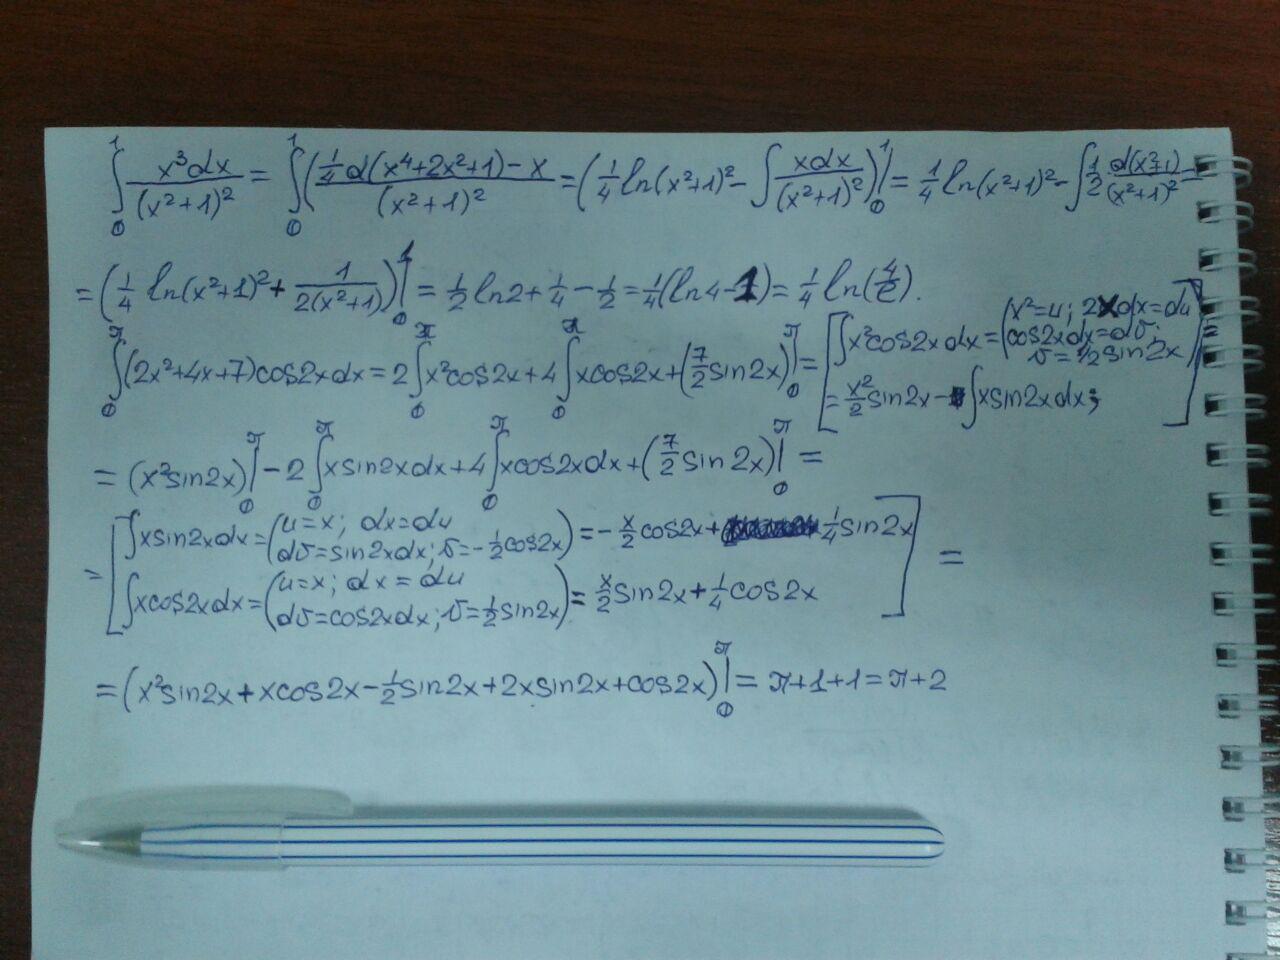 ∫₀¹ x³dx/(x²+1)² = ∫₀¹ (¼d(x⁴+2x²+1)-x)/(x²+1)² = (¼ ln(x²+1)² - ∫ xdx/(x²+1)²)|₀¹ = ¼ ln(x²+1)² - ∫ ½ d(x²+1)/(x²+1)² =
= (¼ ln(x²+1)² + 1/(2(x²+1)))|₀¹ = ½ ln2 + ¼ - ½ = ¼(ln4-1) = ¼ ln(4/e).
∫₀^π (2x²+4x+7)cos2xdx = 2∫₀^π x²cos2x + 4∫₀^π xcos2x + (7/2 sin2x)|₀^π = [∫x²cos2xdx = (x²=u; 2xdx=du cos2xdx=dv; v=½sin2x) =
= x²/2 sin2x - ∫xsin2xdx;]
= (x²sin2x)|₀^π - 2∫₀^π xsin2xdx + 4∫₀^π xcos2xdx + (7/2 sin2x)|₀^π =
= [∫xsin2xdx = (u=x; dx=du dv=sin2xdx; v=-½cos2x) = -x/2 cos2x + ¼sin2x
∫xcos2xdx = (u=x; dx=du dv=cos2xdx; v=½sin2x) = x/2 sin2x + ¼cos2x] =
= (x²sin2x + xcos2x - ½sin2x + 2xsin2x + cos2x)|₀^π = π+1+1 = π+2